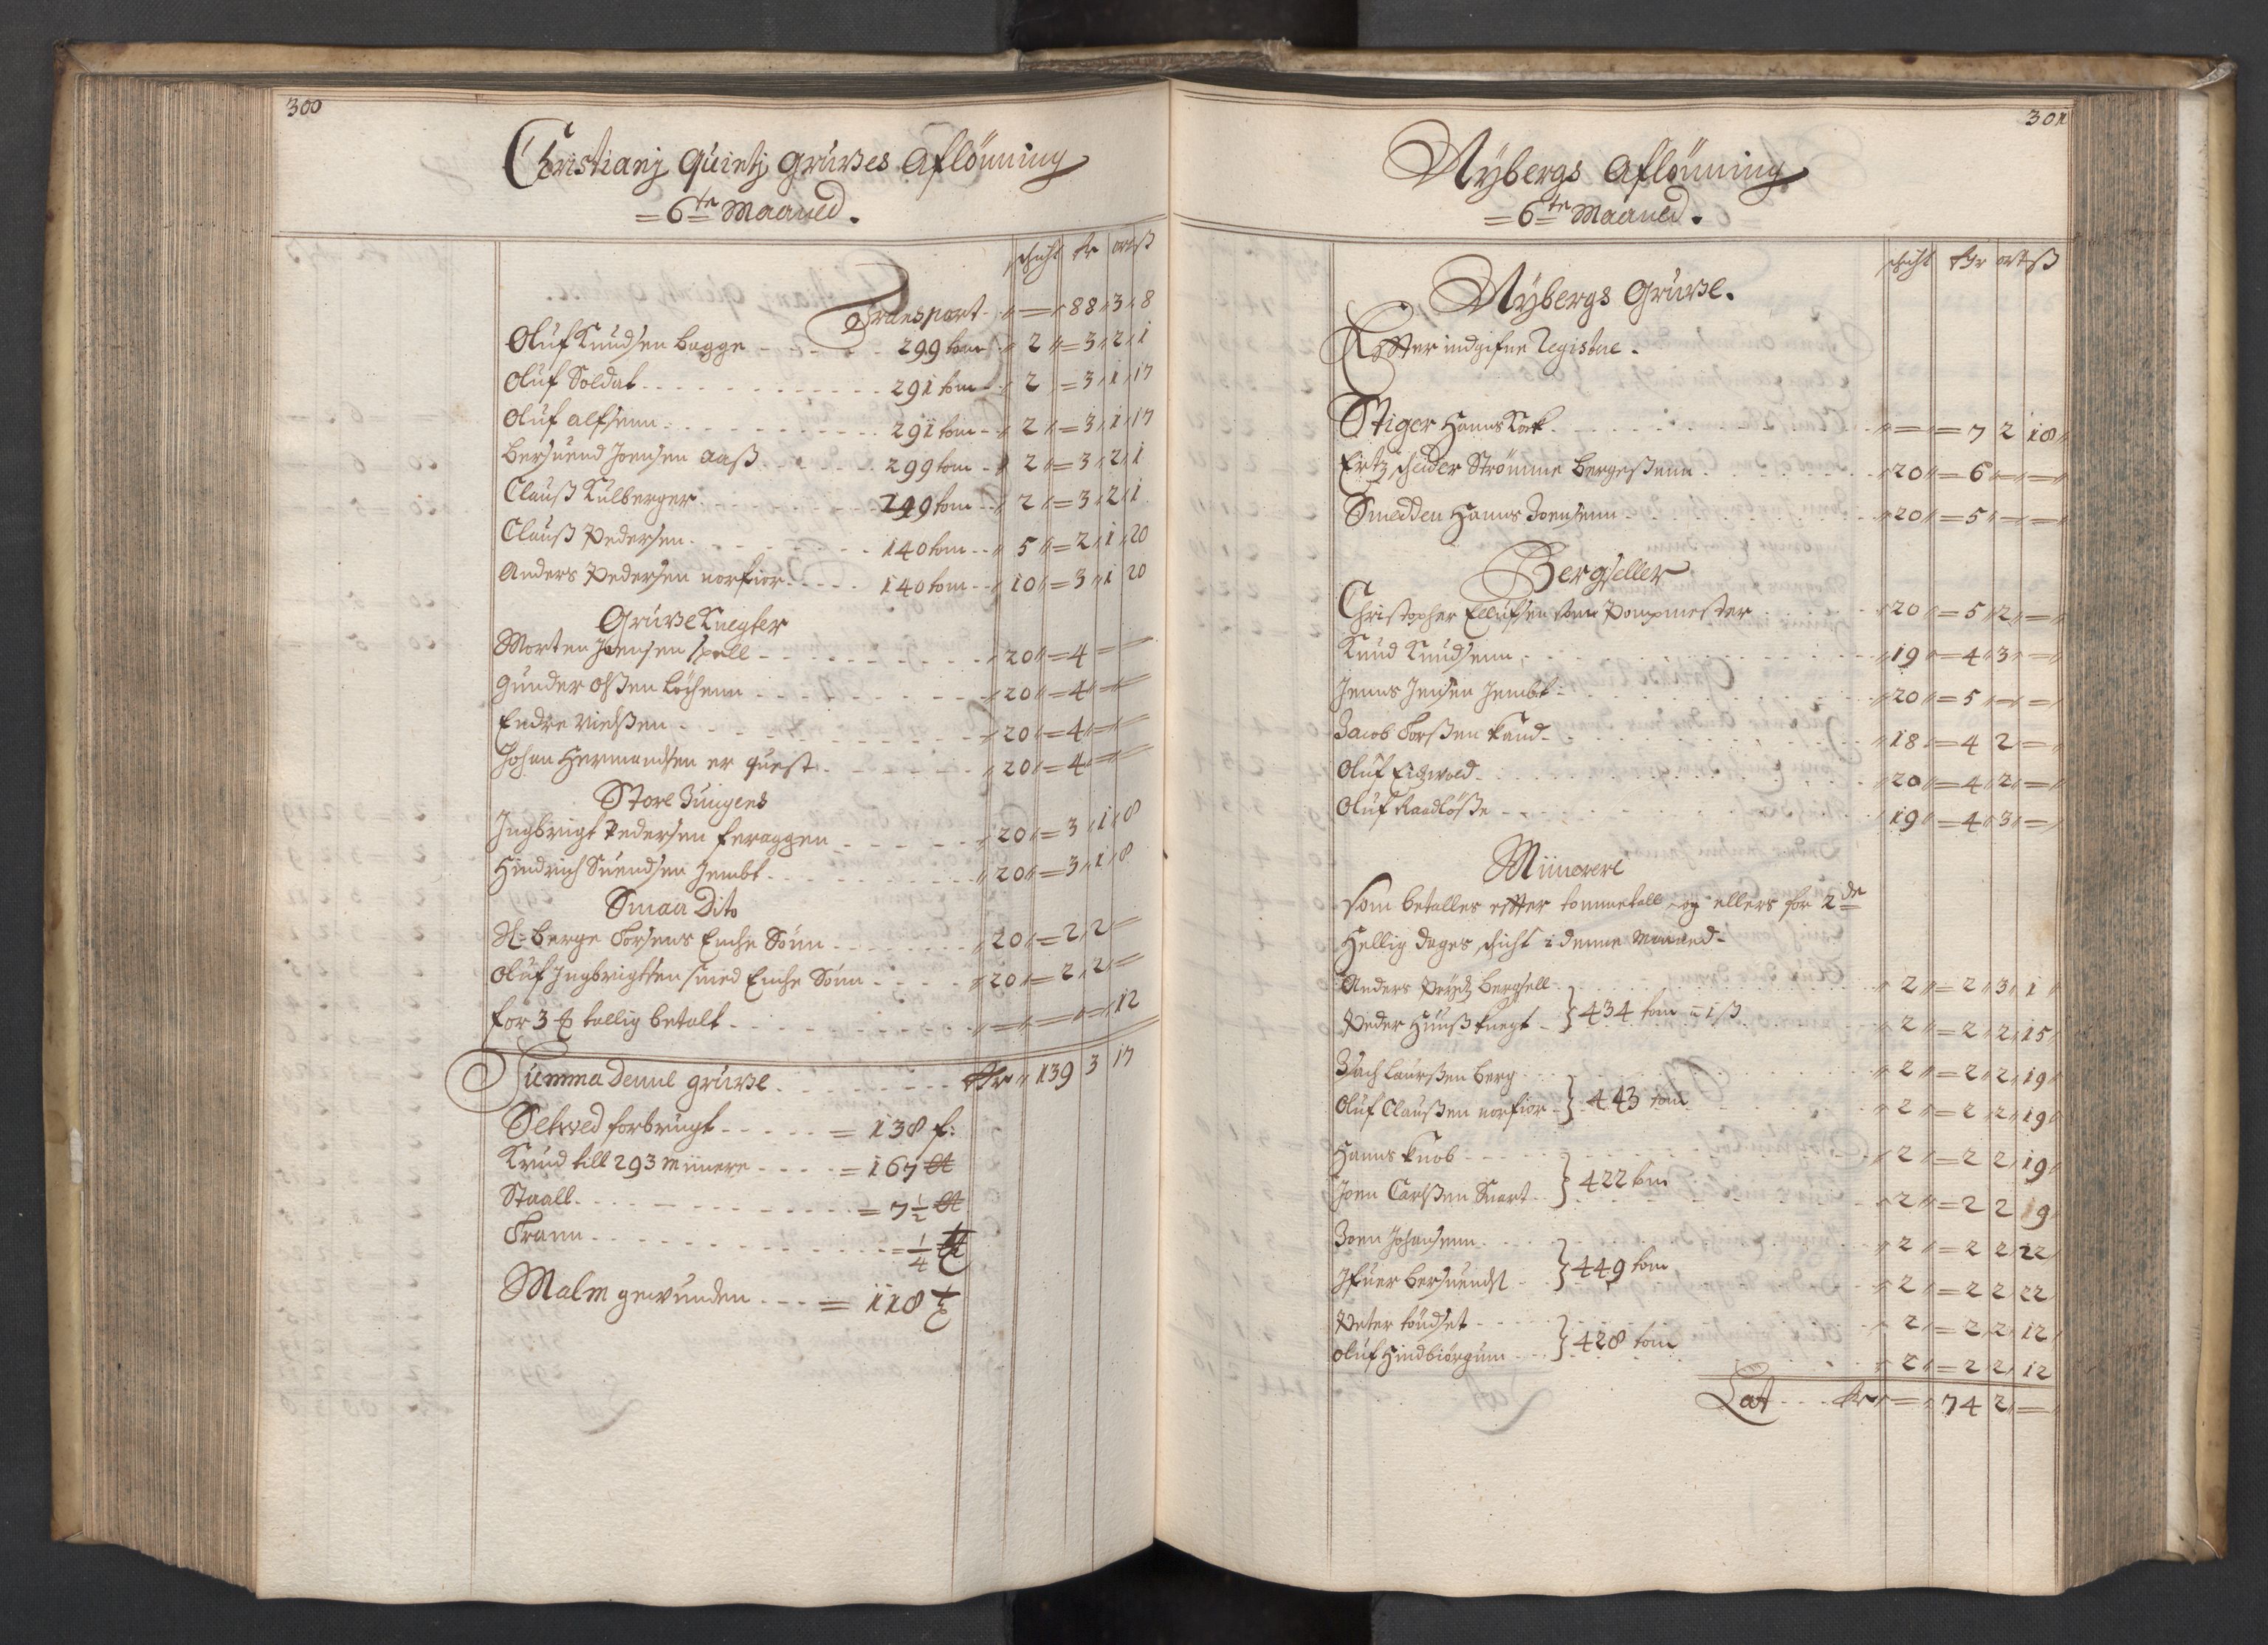 300
Christianj Quintj Gruwes Aflönning
= 6te Maaned.
schicht tr ort ß
Transport „ = „ 88 „ 3 „ 8
Oluf Knudsen Bagge 299 tom „ 2 „ = 3 „ 2 „ 1
Oluf Soldat 291 tom 2 = 3 „ 1 „ 17
Oluf alfsenn 291 tom „ 2 „ = 3 „ 1 „ 17
Bersuend Joensen Aaß 299 tom „ 2 „ = 3 „ 2 „ 1
Clauß Kulberger 299 tom „ 2 „ = 3 „ 2 „ 1
Clauß Pedersen 140 tom „ 5 „ = 2 „ 1 „ 20
Anders Pedersen norfior 140 tom „ 10 „ = 3 „ 1 20
Gruwe Knegter
Morten Joensen Spell „ 20 „ = 4 = =
Gunder Olßen „ 20 „ = 4 „ = „ =
Endre Nielßen „ 20 „ = 4 „ = „ =
Johan Hermandsen er quest „ 20 „ = 4 „ = =
Store Jungens
Ingbrigt Pedersen feraggen „ 20 „ = 3 „ 1 „ 8
Hindrich Suendsen Jembt „ 20 „ = 3 „ 1 „ 8
Smaa Dito
Sl: Berge Torsens Enche Sönn „ 20 „ = 2 „ 2 „ =
Oluf Ingbrigtsen smed Enche Sönn „ 20 „ = 2 „ 2 „ =
for 3 ℔ tallig betalt „ = „ = „ = „ 12
Summa denne gruwe tr „ 139 3 17
Setwed forbrugt = 138 f:
Krud till 293 Miinere = 167 ℔
Staall = 7 1/2 ℔
Trann = 1/4 t
Malm gewunden = 118 t
301
Nybergs Aflönning
= 6te Maaned.
schicht tr ort ß
Nybergs Gruwe.
Efter indgifne Registere.
Stiger Hanns Kork „ = „ = 7 2 18 „
Ertz scheider Strömme Bergeßenn „ 20 „ = 6 „ = „ = „
Smedden Hanns Joensenn „ 20 „ = 5 „ = „ = „
Bergseller
Christopher Ellufsen som Pompmester „ 20 „ = 5 „ 2 „ = „
Knud Knudsenn „ 19 „ = 4 „ 3 „ = „
Jenns Jensen Jembt „ 20 „ = 5 „ = „ = „
Jacob Torßen Rand „ 18 „ = 4 2 „ = „
Oluf Eidzwold „ 20 „ = 4 „ 2 „ = „
Oluf Raadlöße „ 19 „ = 4 „ 3 „ = „
Miinerere
som betalles efter tommetall, og ellers for 2de
Hellig dages schicht i denne Maaned.
Anders Prydz bergsell } 434 tom = 1 ß „ 2 „ = 2 „ 3 „ 1 „
Peder Huuß knegt „ 2 „ = 2 „ 2 „ 15 „
Zach Laurßen Berg } 443 tom „ 2 „ = 2 „ 2 „ 19 „
Oluf Claußen norfior „ 2 „ = 2 „ 2 „ 19 „
Hanns Knob } 422 tom „ 2 „ = 2 2 „ 19 „
Joen Carlßen Snart „ 2 „ = 2 2 19 „
Joen Johansenn } 449 tom „ 2 „ = 2 2 „ 22 „
Ifuer Bersuendt „ 2 „ = 2 2 „ 22 „
Peter töndset } 428 tom „ 2 „ = 2 „ 2 „ 12 „
Oluf Hindbiörgum „ 2 „ = 2 2 „ 12
Lat tr „ = „ 74 2 „ = „